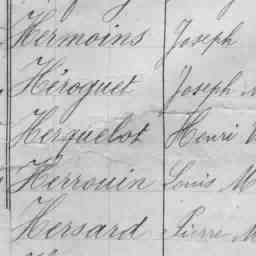 Hermoins Joseph
Héroguet Joseph
Herguelot Henri
Herrouin Louis M
Hersard Pierre M